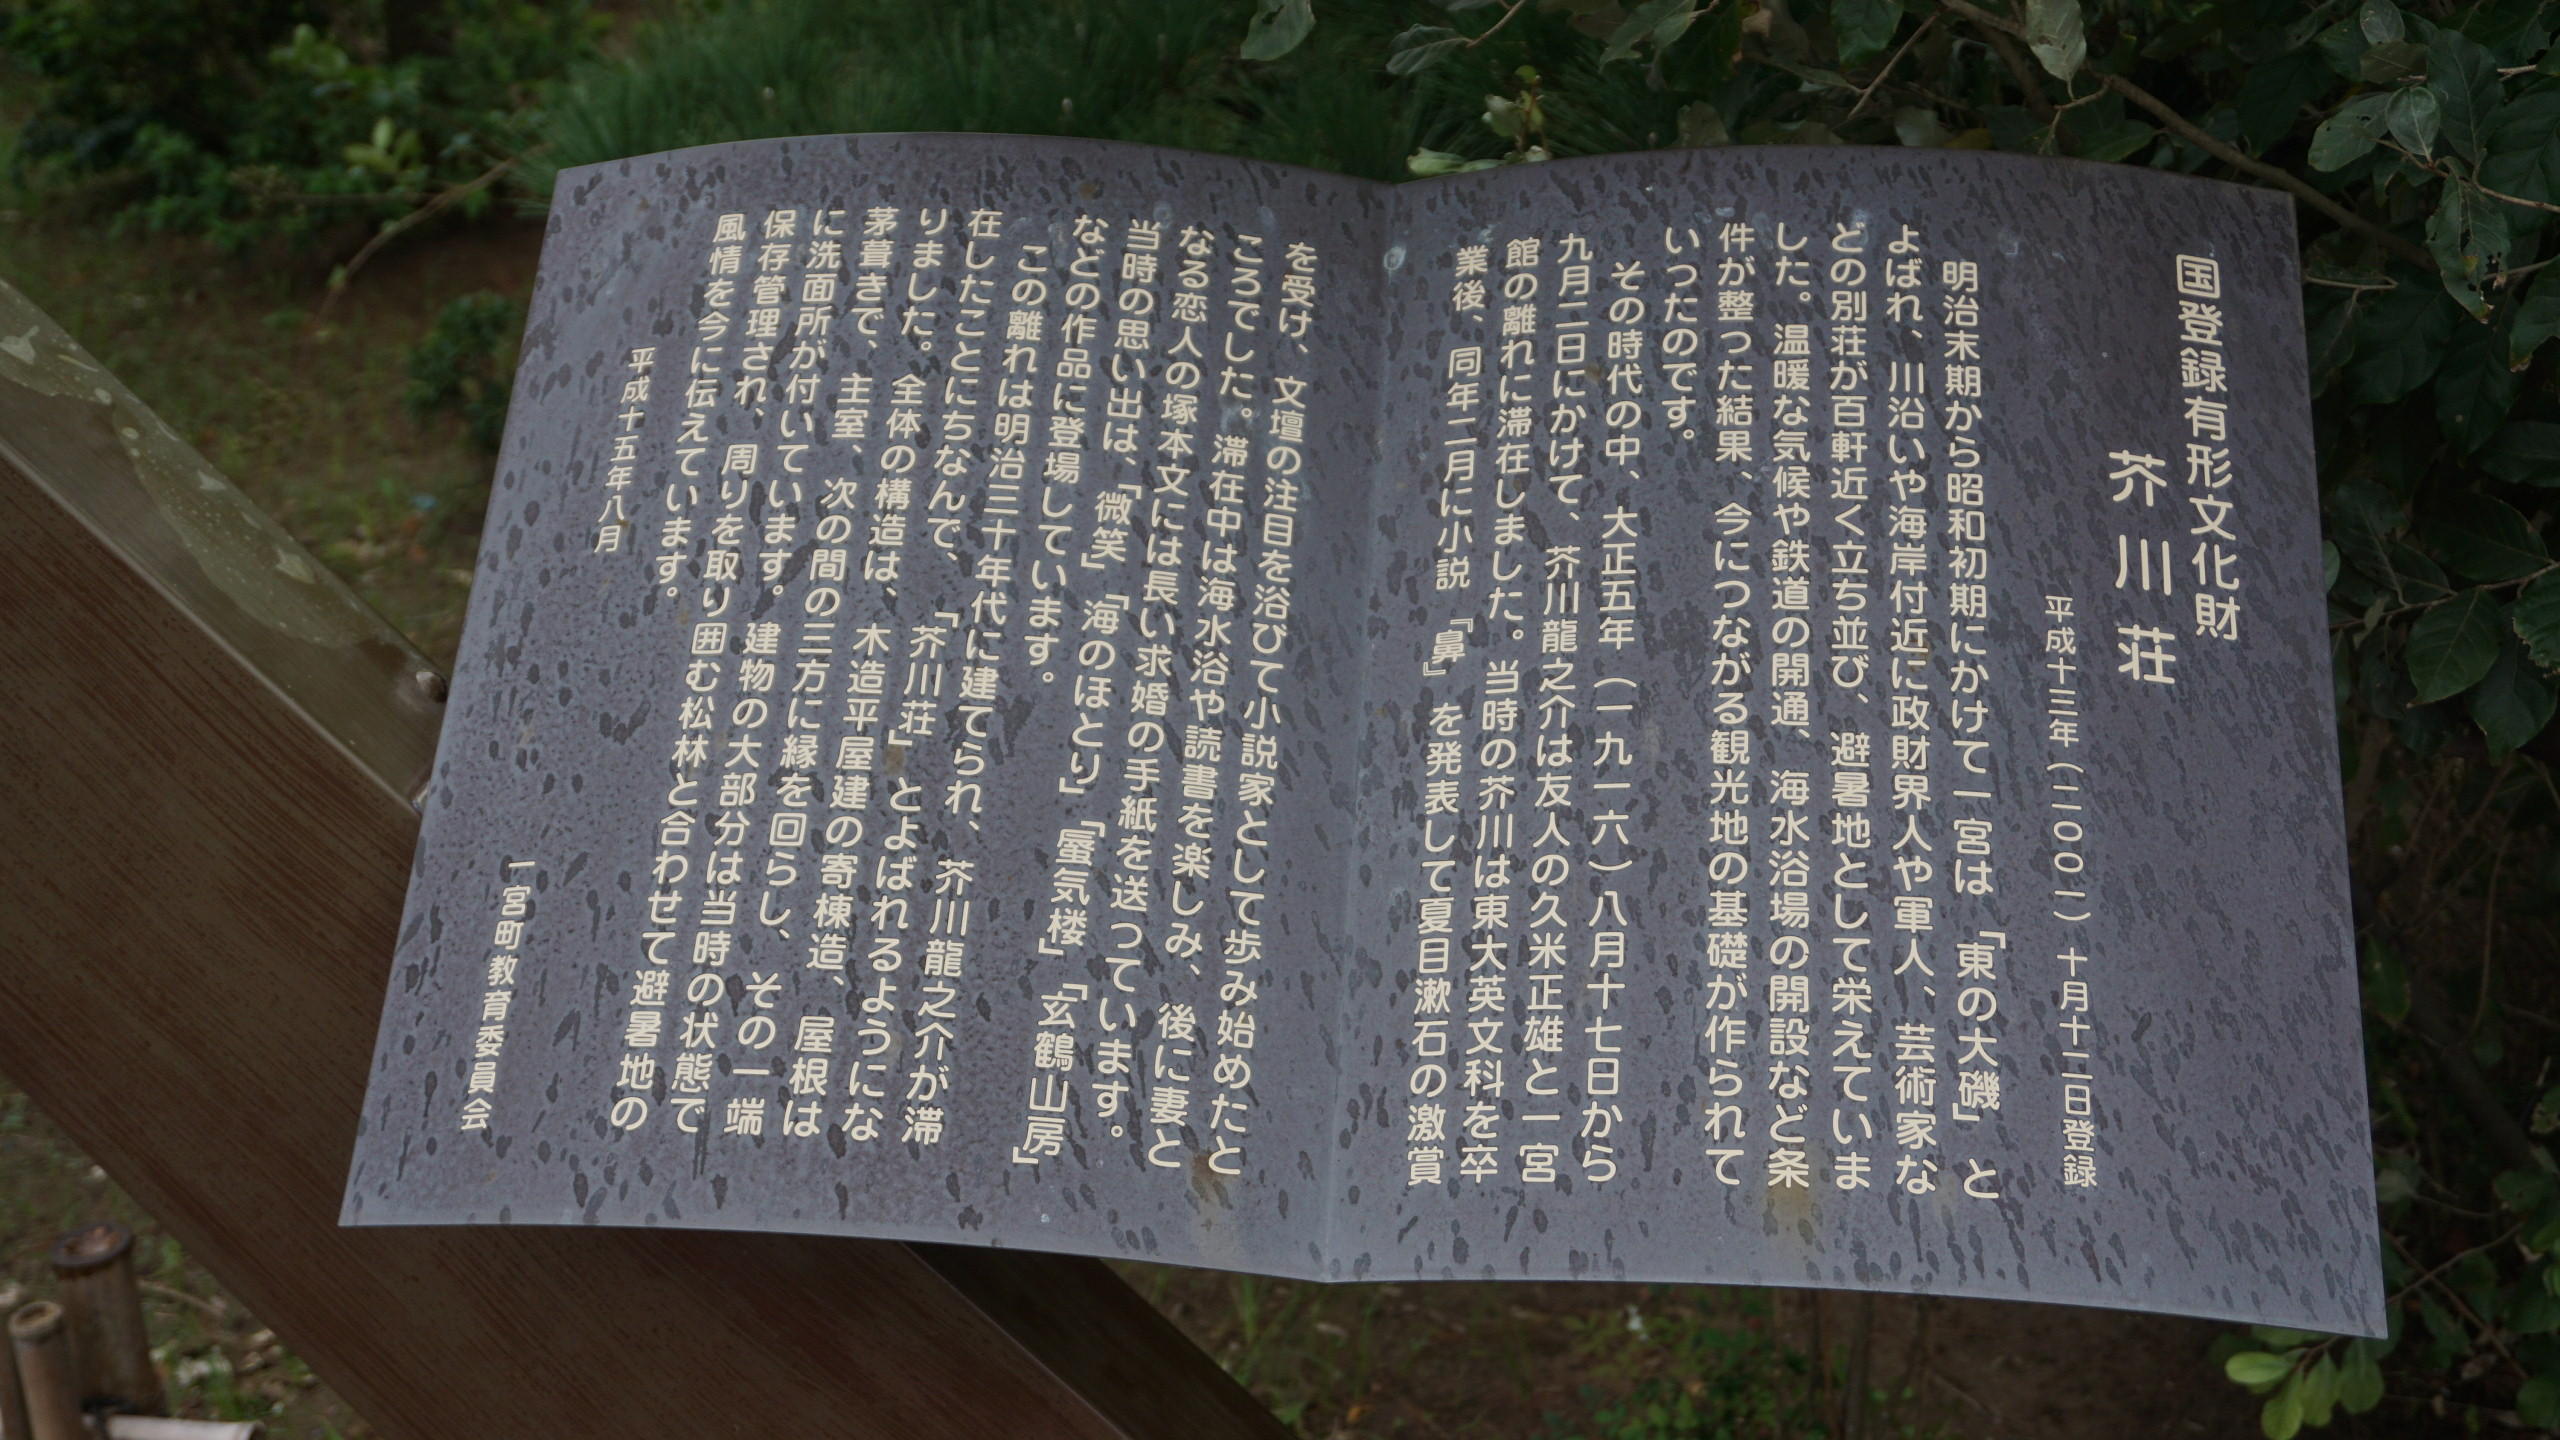 国登録有形文化財
芥川荘
平成十三年(二〇〇一)十月十二日登録
明治末期から昭和初期にかけて一宮は「東の大磯」と
よばれ、川沿いや海岸付近に政財界人や軍人、芸術家な
どの別荘が百軒近く立ち並び、避暑地として栄えていま
した。温暖な気候や鉄道の開通、海水浴場の開設など条
件が整った結果、今につながる観光地の基礎が作られて
いったのです。
その時代の中、大正五年(一九一六)八月十七日から
九月二日にかけて、芥川龍之介は友人の久米正雄と一宮
館の離れに滞在しました。当時の芥川は東大英文科を卒
業後、同年二月に小説『鼻』を発表して夏目漱石の激賞
を受け、文壇の注目を浴びて小説家として歩み始めたと
ころでした。滞在中は海水浴や読書を楽しみ、後に妻と
なる恋人の塚本文には長い求婚の手紙を送っています。
当時の思い出は、「微笑」「海のほとり」「蜃気楼」「玄鶴山房」
などの作品に登場しています。
この離れは明治三十年代に建てられ、芥川龍之介が滞
在したことにちなんで、「芥川荘」とよばれるようにな
りました。全体の構造は、木造平屋建の寄棟造、屋根は
茅葺きで、主室、次の間の三方に縁を回らし、その一端
に洗面所が付いています。建物の大部分は当時の状態で
保存管理され、周りを取り囲む松林と合わせて避暑地の
風情を今に伝えています。
平成十五年八月
一宮町教育委員会